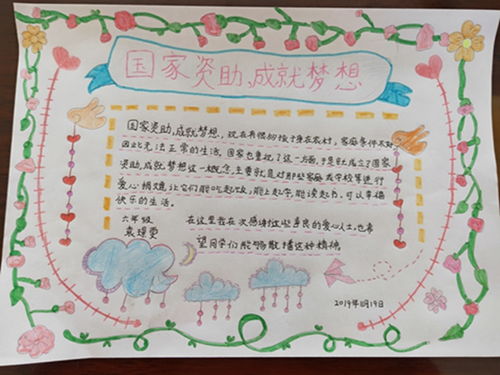 国家资助,成就梦想
国家资助,成就梦想,现在有很多孩子身在农村,家庭条件不好
因此无法正常的生活,国家也重视了这一方面,于是就成立了国家
资助,成就梦想这一概念,主要就是对那些家庭或学校等进行
爱心捐赠,让它们能吃起饭,能上起学,能读起书,可以幸福
快乐的生活。
六年级
在这里我在次感谢这些善良的爱心人士,也希
望同学们能够散播这种精神
2019年11月19日